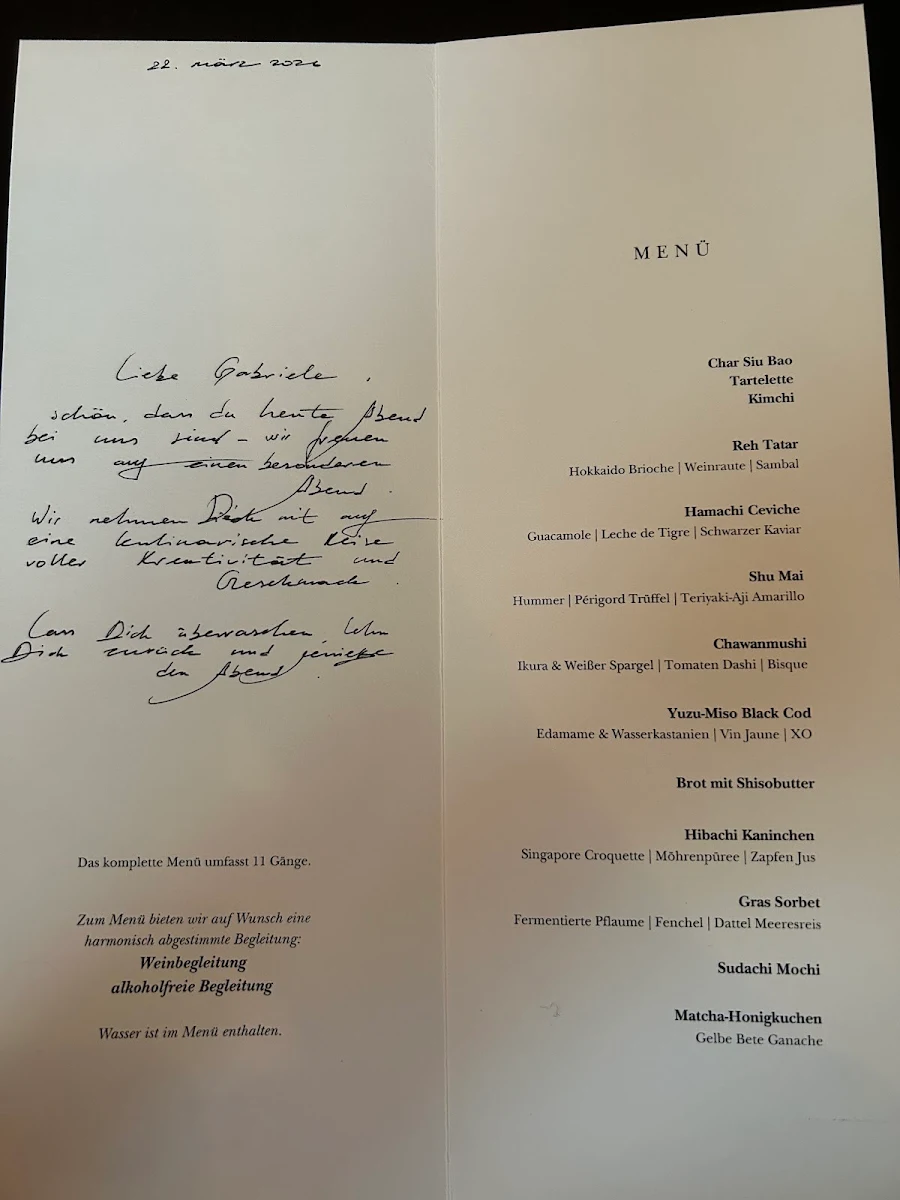 22. März 2026
Liebe Gabriele,
schön, dass du heute Abend
bei uns sind – wir freuen
uns auf einen besonderen
Abend.
Wir nehmen Dich mit auf
eine kulinarische Reise
voller Kreativität und
Geschmack.
Lass Dich überraschen, lehn
Dich zurück und genieße
den Abend.
Das komplette Menü umfasst 11 Gänge.
Zum Menü bieten wir auf Wunsch eine
harmonisch abgestimmte Begleitung:
Weinbegleitung
alkoholfreie Begleitung
Wasser ist im Menü enthalten.
MENÜ
Char Siu Bao
Tartelette
Kimchi
Reh Tatar
Hokkaido Brioche | Weinraute | Sambal
Hamachi Ceviche
Guacamole | Leche de Tigre | Schwarzer Kaviar
Shu Mai
Hummer | Périgord Trüffel | Teriyaki-Aji Amarillo
Chawanmushi
Ikura & Weißer Spargel | Tomaten Dashi | Bisque
Yuzu-Miso Black Cod
Edamame & Wasserkastanien | Vin Jaune | XO
Brot mit Shisobutter
Hibachi Kaninchen
Singapore Croquette | Möhrenpüree | Zapfen Jus
Gras Sorbet
Fermentierte Pflaume | Fenchel | Dattel Meeresreis
Sudachi Mochi
Matcha-Honigkuchen
Gelbe Bete Ganache